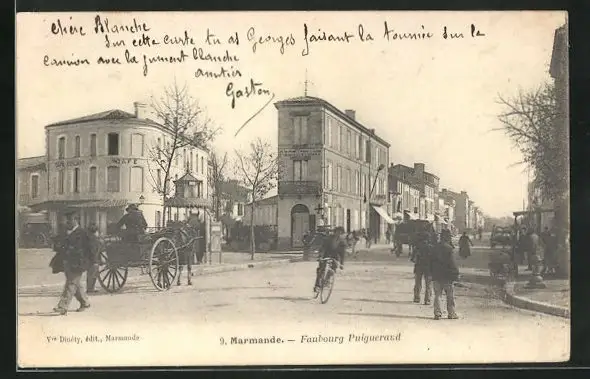 chère Blanche
sur cette carte tu as Georges faisant la tournée sur le
camion avec la jument blanche
amitiés
Gaston
CAFÉ
Vve Dinéty, édit., Marmande
9. Marmande. — Faubourg Puiguéraud